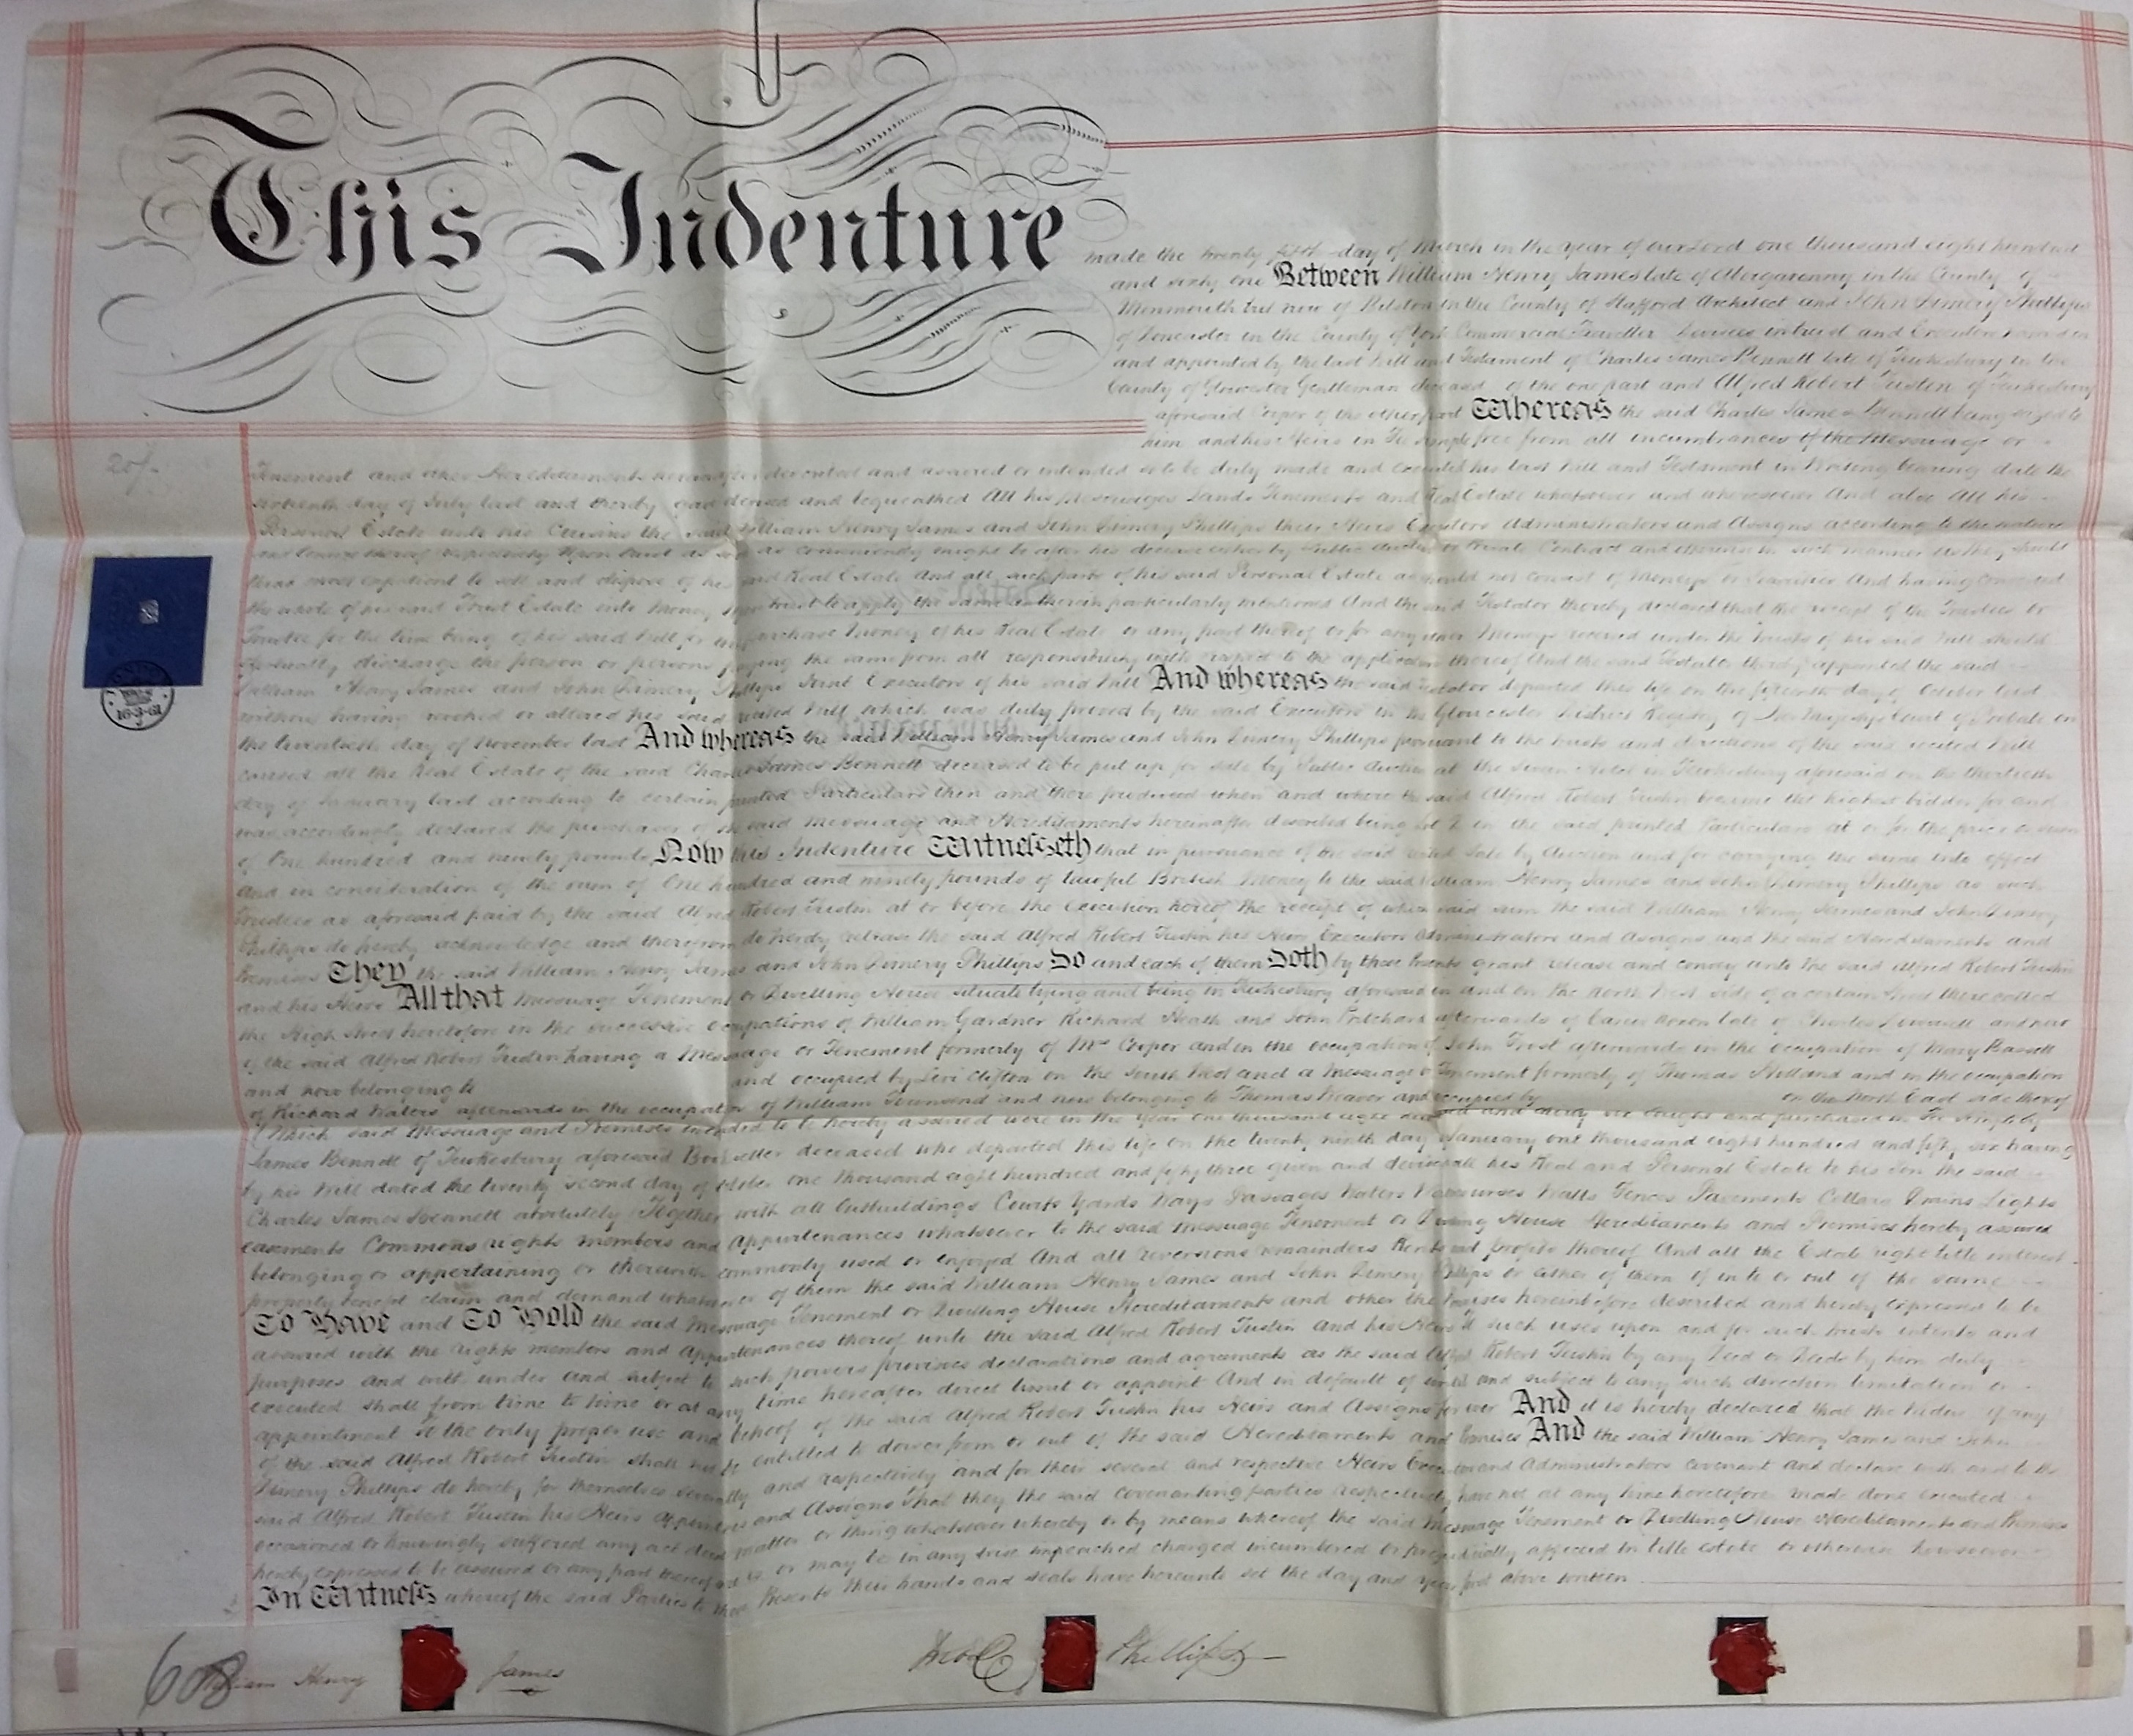 This Indenture
made the twenty fifth day of March in the year of our Lord one thousand eight hundred
and sixty one Between William Henry James late of Abergavenny in the County of
Monmouth but now of Bilston in the County of Stafford Architect and John Phillips
of Doncaster in the County of York Commercial Traveller Devisees in trust and Executors named in
and appointed by the last Will and Testament of Charles James Bennett late of Tewkesbury in the
County of Gloucester Gentleman deceased of the one part and Alfred Robert Tustin of Tewkesbury
aforesaid Cooper of the other part Whereas the said Charles James Bennett being seized to
him and his Heirs in Fee simple free from all incumbrances of the Messuage or
20/-
Tenement and other Hereditaments hereinafter described and assured or intended so to be duly made and executed his last Will and Testament in Writing bearing date the
day of July last and thereby gave devised and bequeathed All his Messuages Lands Tenements and Real Estate whatsoever and wheresoever And also All his
Personal Estate unto his Cousins the said William Henry James and John Phillips their Heirs Executors Administrators and Assigns according to the nature
and tenure thereof respectively Upon trust as soon as conveniently might be after his decease either by Public Auction or Private Contract and otherwise in such manner as they should
think most expedient to sell and dispose of his said Real Estate And all such parts of his said Personal Estate as should not consist of Moneys or Securities And having converted
the whole of his said Trust Estate into Money upon trust to apply the same as therein particularly mentioned And the said Testator thereby declared that the receipt of the Trustees or
Trustee for the time being of his said Will for any purchase Money of his Real Estate or any part thereof or for any other Moneys received under the trusts of his said Will should
effectually discharge the person or persons paying the same from all responsibility with respect to the application thereof And the said Testator thereby appointed the said
William Henry James and John Phillips Joint Executors of his said Will And whereas the said Testator departed this life on the fifteenth day of October last
without having revoked or altered his said recited Will which was duly proved by the said Executors in the Gloucester District Registry of Her Majestys Court of Probate on
16-3-61
the twentieth day of November last And whereas the said William Henry James and John Phillips pursuant to the trusts and directions of the said recited Will
caused all the Real Estate of the said Charles James Bennett deceased to be put up for sale by Public Auction at the Swan Hotel in Tewkesbury aforesaid on the thirtieth
day of January last according to certain printed Particulars then and there produced when and where the said Alfred Robert Tustin became the highest bidder for and
was accordingly declared the purchaser of the said Messuage and Hereditaments hereinafter described being Lot 2 in the said printed Particulars at or for the price or sum
of One hundred and ninety pounds Now this Indenture Witnesseth that in pursuance of the said recited Sale by Auction and for carrying the same into effect
and in consideration of the sum of One hundred and ninety pounds of lawful British Money to the said William Henry James and John Phillips as such
Trustees as aforesaid paid by the said Alfred Robert Tustin at or before the execution hereof the receipt of which said sum the said William Henry James and John
Phillips do hereby acknowledge and therefrom do hereby release the said Alfred Robert Tustin his Heirs Executors Administrators and Assigns and the said Hereditaments and
Premises They the said William Henry James and John Phillips Do and each of them Doth by these Presents grant release and convey unto the said Alfred Robert Tustin
and his Heirs All that Messuage Tenement or Dwelling House situate lying and being in Tewkesbury aforesaid in and on the North West side of a certain Street there called
the High Street heretofore in the successive occupations of William Gardner Richard Heath and John Pritchard afterwards of late of Charles and now
of the said Alfred Robert Tustin having a Messuage or Tenement formerly of Mrs Cooper and in the occupation of John Frost afterwards in the occupation of Mary Bassett
and now belonging to and occupied by Levi Clifton on the South West and a Messuage or Tenement formerly of Thomas Holland and in the occupation
of Richard Waters afterwards in the occupation of William Townsend and now belonging to Thomas Weaver and occupied by on the North East side thereof
Which said Messuage and Premises intended to be hereby assured were in the Year one thousand eight hundred and thirty bought and purchased in Fee simple by
James Bennett of Tewkesbury aforesaid Bookseller deceased who departed this life on the twenty ninth day January one thousand eight hundred and fifty six having
by his Will dated the twenty second day of October one thousand eight hundred and fifty three given and devised all his Real and Personal Estate to his Son the said
Charles James Bennett absolutely Together with all Outbuildings Courts Yards Ways Passages Waters Watercourses Walls Fences Pavements Cellars Drains Lights
easements Commons rights members and Appurtenances whatsoever to the said Messuage Tenement or Dwelling House Hereditaments and Premises hereby assured
belonging or appertaining or therewith commonly used or enjoyed And all reversions remainders Rents and profits thereof And all the Estate right title interest
property benefit claim and demand whatsoever of them the said William Henry James and John Phillips or either of them of in to or out of the same
To Have and To Hold the said Messuage Tenement or Dwelling House Hereditaments and other the Premises hereinbefore described and hereby expressed to be
assured with the rights members and Appurtenances thereof unto the said Alfred Robert Tustin and his Heirs To such uses upon and for such trusts intents and
purposes and with under and subject to such powers provisoes declarations and agreements as the said Alfred Robert Tustin by any Deed or Deeds by him duly
executed shall from time to time or at any time hereafter direct limit or appoint And in default of and subject to any such direction limitation or
appointment To the only proper use and behoof of the said Alfred Robert Tustin his Heirs and Assigns for ever And it is hereby declared that the Widow if any
of the said Alfred Robert Tustin shall not be entitled to dower from or out of the said Hereditaments and Premises And the said William Henry James and John
Phillips do hereby for themselves severally and respectively and for their several and respective Heirs Executors and Administrators covenant and declare with and to the
said Alfred Robert Tustin his Heirs appointees and Assigns That they the said covenanting parties respectively have not at any time heretofore made done executed
occasioned or knowingly suffered any act deed matter or thing whatsoever whereby or by means whereof the said Messuage Tenement or Dwelling House Hereditaments and Premises
hereby expressed to be assured or any part thereof are is or may be in any wise impeached charged incumbered or prejudicially affected in title estate or otherwise howsoever
In Witness whereof the said Parties to these Presents their hands and seals have hereunto set the day and year first above written
608
William Henry James
Phillips